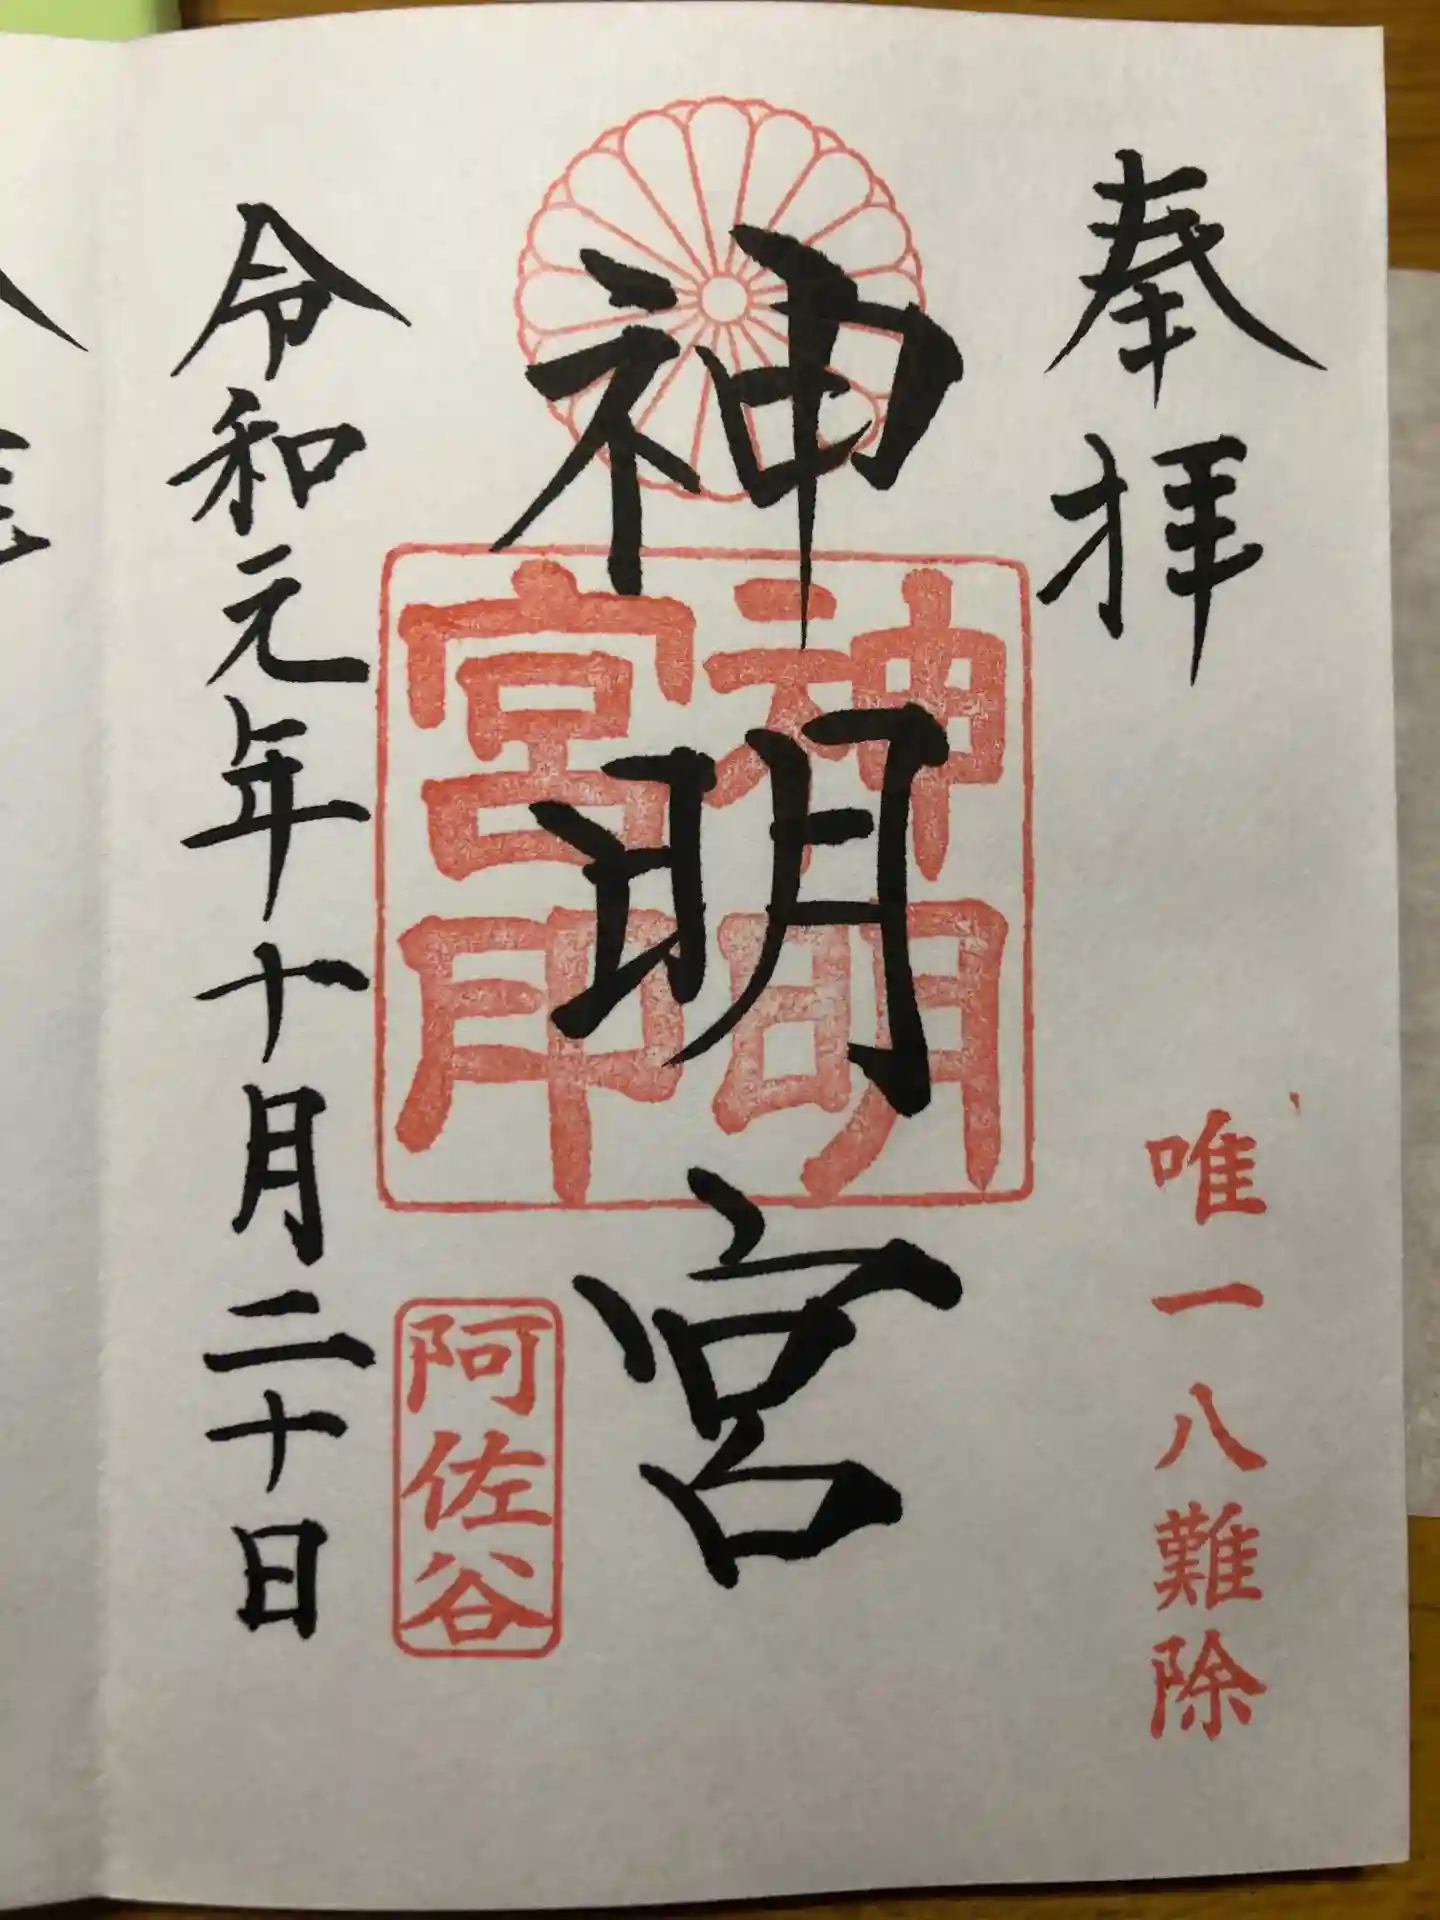 奉拝
唯一八難除
神明宮
神明宮印
阿佐谷
令和元年十月二十日